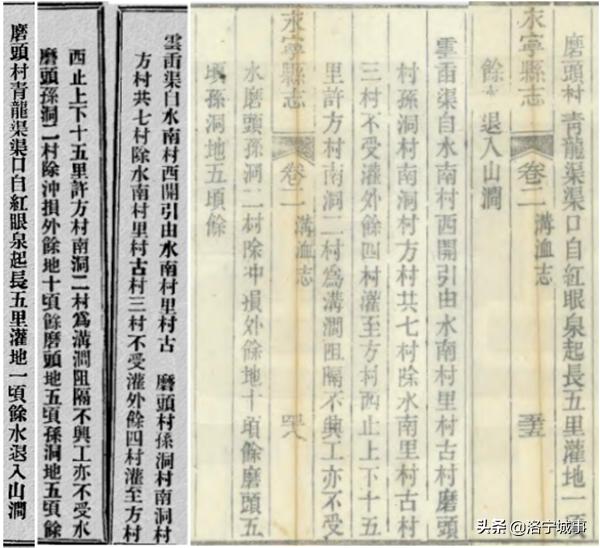 磨頭村青龍渠渠口自紅眼泉起長五里灌地一頃
溝洫志
永寧縣志 卷二
餘水退入山澗
雲甬渠自水南村西開引由水南村里村古村磨頭
村孫洞村南洞村方村共七村除水南里村古
三村不受灌外餘四村灌至方村西止上下十五
里許方村南洞二村為溝澗阻隔不興工亦不受
溝洫志
永寧縣志 卷二
水磨頭孫洞二村除沖損外餘地十頃餘磨頭五
頃孫洞地五頃餘
雲甬渠自水南村西開引由水南村里村古 磨頭村孫洞村南洞村
方村共七村除水南村里村古村三村不受灌外餘四村灌至方村
西止上下十五里許方村南洞二村為溝澗阻隔不興工亦不受水
磨頭孫洞二村除沖損外餘地十頃餘磨頭地五頃孫洞地五頃餘
磨頭村青龍渠渠口自紅眼泉起長五里灌地一頃餘水退入山澗
头条 @洛宁城事